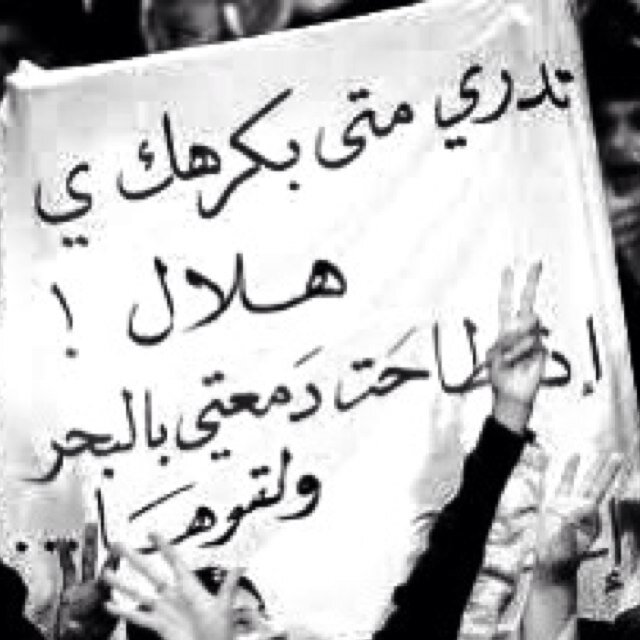 تدري متى بكرهك ي
هـلال !
اذا طاحَت دَمعتي بالبحر
ولقوهَـا ..